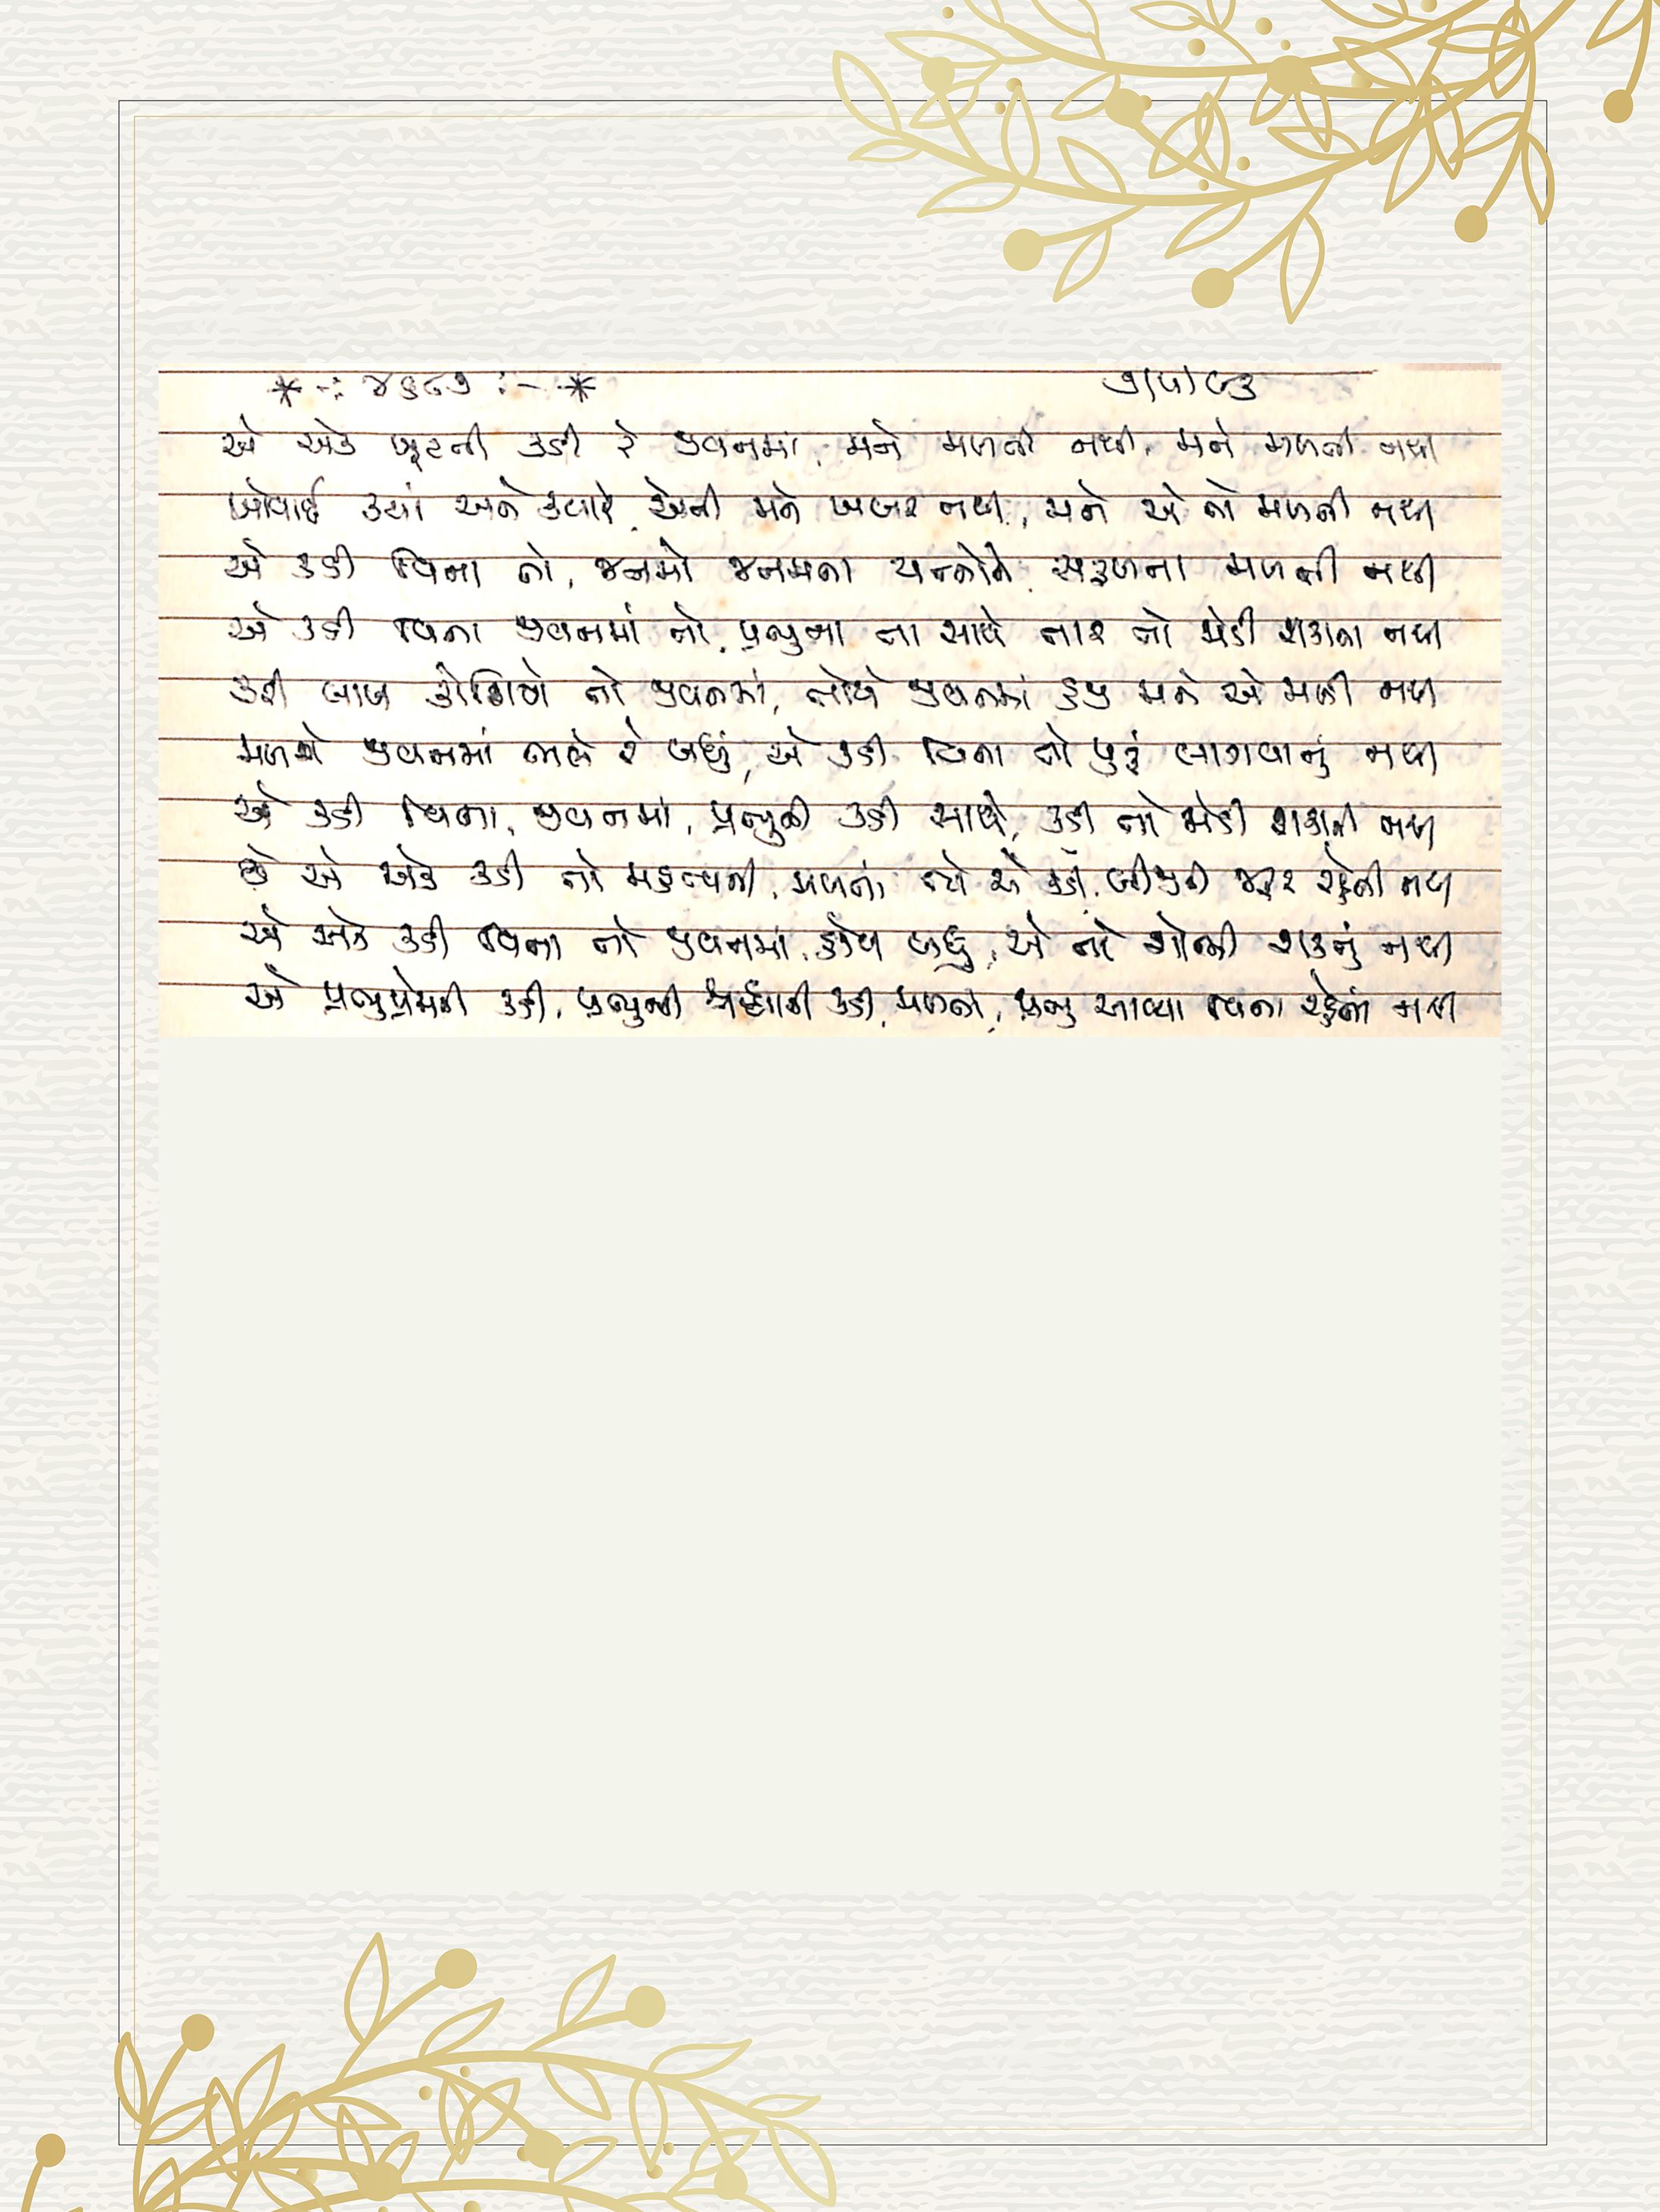 * -: ૪૬૮૭ :- * ૭/૫/૯૩
એ એક ખૂટતી કડી રે જીવનમાં, મને મળતી નથી, મને મળતી નથી
ખોવાઈ ક્યાં અને ક્યારે, એની મને ખબર નથી, મને એ તો મળતી નથી
એ કડી વિના તો, જનમો જનમના યત્નોને સફળતા મળતી નથી
એ કડી વિના જીવનમાં તો, પ્રભુના તા સાથે તાર તો જોડી શકાતા નથી
કરી લાખ કોશિશો તો જીવનમાં, તોયે જીવનમાં હજી મને એ મળી નથી
મળશે જીવનમાં ભલે રે બધું, એ કડી વિના તો પુરું લાગવાનું નથી
એ કડી વિના, જીવનમાં, પ્રભુની કડી સાથે, કડી તો જોડી શકાતી નથી
છે એ એક કડી તો મહત્વની, મળતાં એ કડી, બીજી જરૂર રહેતી નથી
એ એક કડી વિના તો જીવનમાં, હોય બધું, એ તો શોભી શકતું નથી
એ પ્રભુપ્રેમની કડી, પ્રભુની શ્રદ્ધાની કડી, મળતાં, પ્રભુ આવ્યા વિના રહેતાં નથી